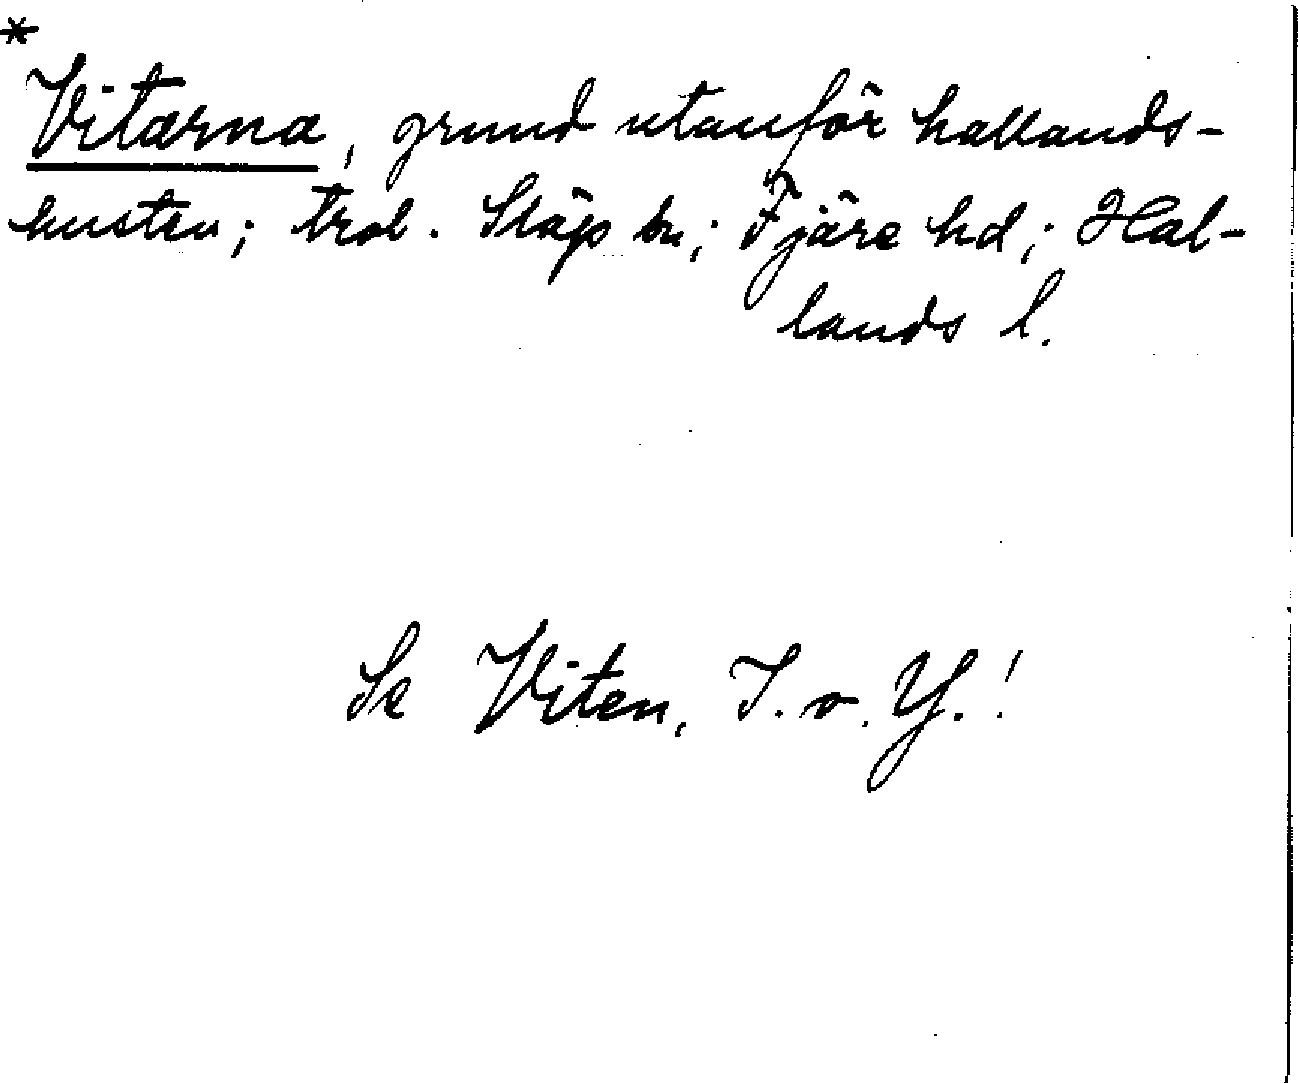 *
Vitarna, grund utanför hallands-
kusten; trol. Släp sn; Fjäre hd; Hal-
lands l.
Se Viten, I. o. Y.!